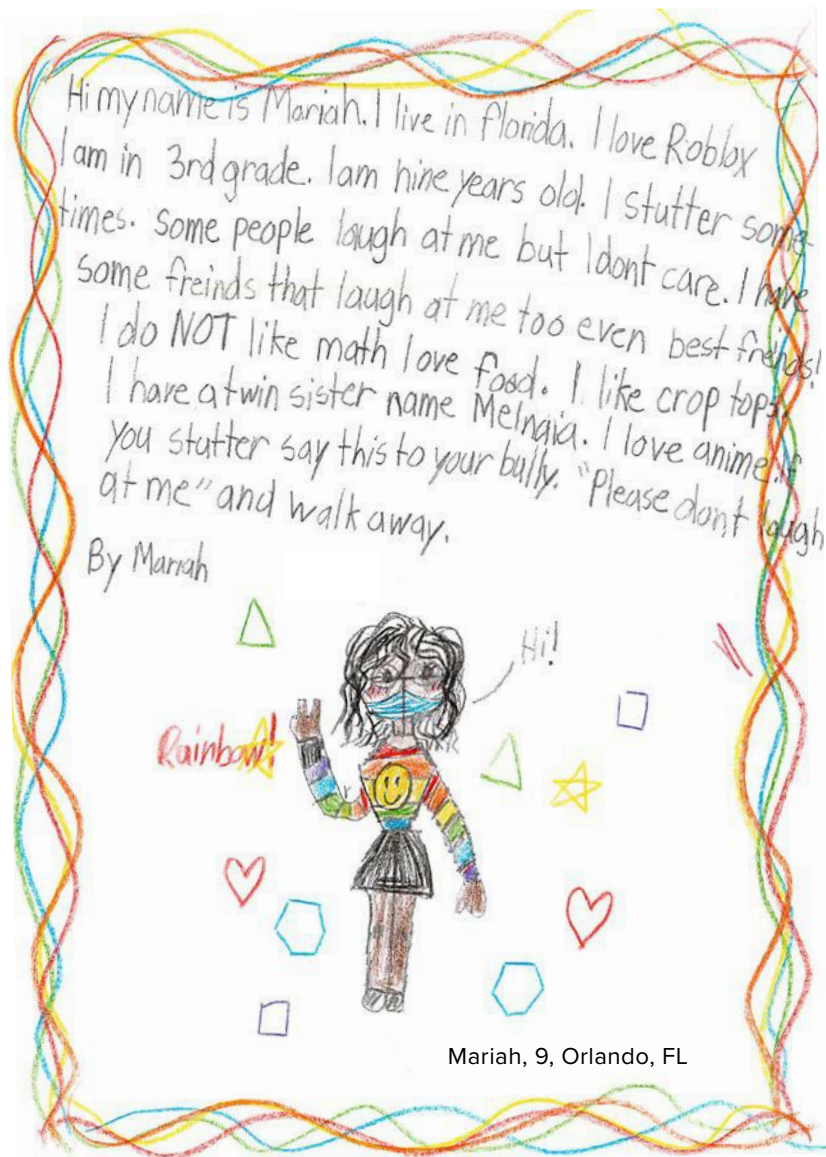 Hi my name is Mariah. I live in florida. I love Roblox
I am in 3rd grade. I am nine years old. I stutter some-
times. some people laugh at me but I dont care. I have
some freinds that laugh at me too even best freinds!
I do NOT like math love food. I like crop tops.
I have a twin sister name Melngia. I love anime. if
you stutter say this to your bully. "Please dont laugh
at me" and walk away.
By Mariah
Hi!
Rainbow!
Mariah, 9, Orlando, FL